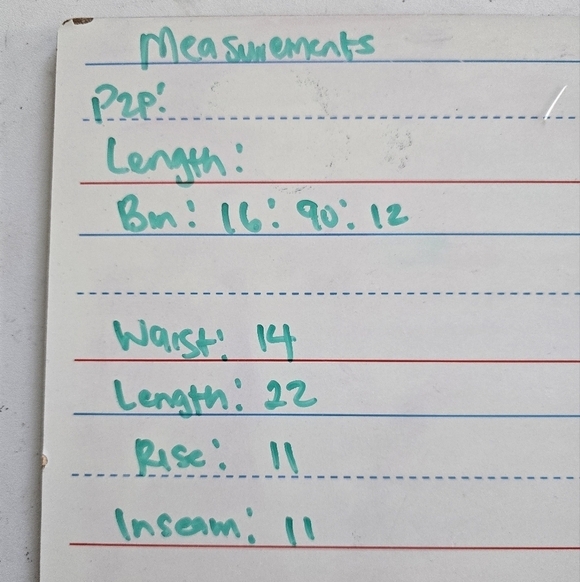 Measurements
P2P:
Length:
Bm: 16: 90: 12
Waist: 14
Length: 22
Rise: 11
Inseam: 11